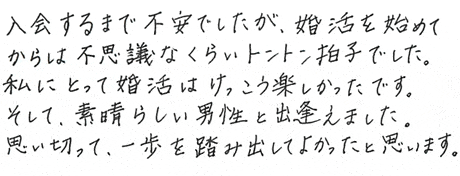 入会するまで不安でしたが、婚活を始めて
からは不思議なくらいトントン拍子でした。
私にとって婚活はけっこう楽しかったです。
そして、素晴らしい男性と出逢えました。
思い切って、一歩を踏み出してよかったと思います。